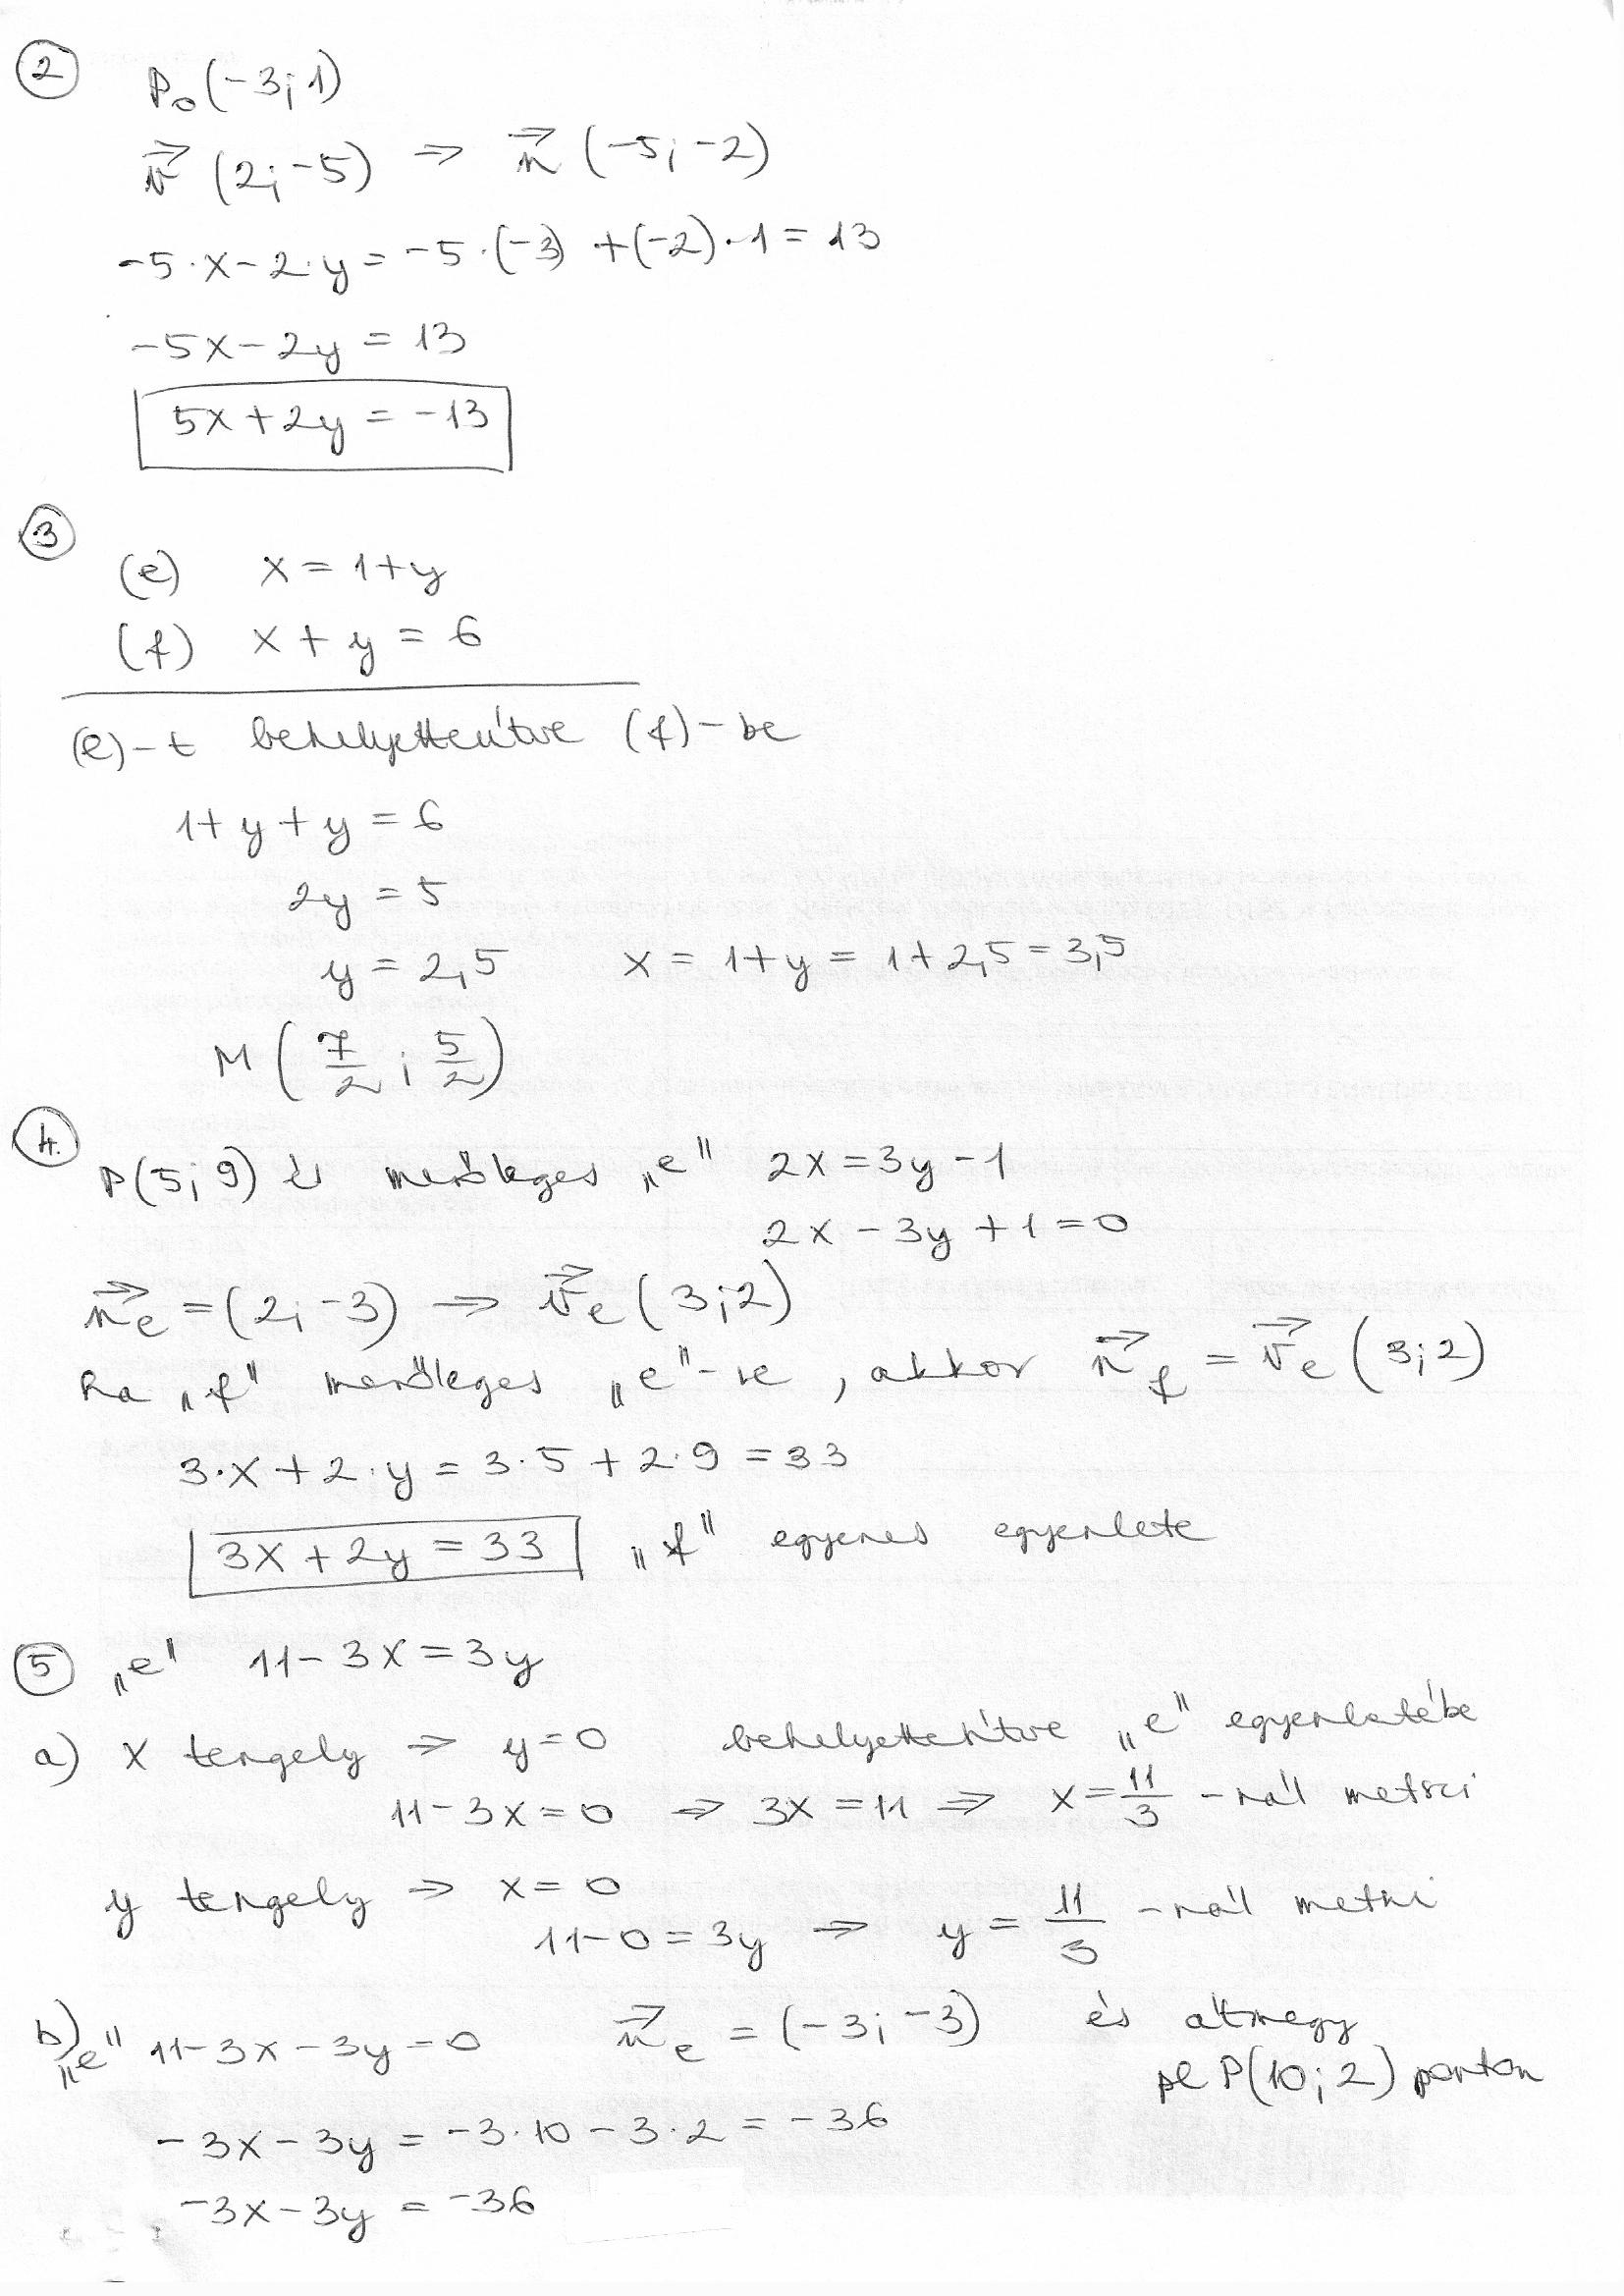 2
P₀(-3; 1)
v⃗ (2; -5) ⇒ n⃗ (-5; -2)
-5·x-2·y = -5·(-3) +(-2)·1 = 13
-5x-2y = 13
5x+2y = -13
3
(e) x = 1+y
(f) x + y = 6
(e)-t behelyettesítve (f)-be
1+y+y = 6
2y = 5
y = 2,5 x = 1+y = 1+2,5 = 3,5
M (7/2 ; 5/2)
4.
P(5; 9) és merőleges „e" 2x = 3y - 1
2x - 3y + 1 = 0
n⃗e = (2; -3) ⇒ v⃗e (3; 2)
ha „f" merőleges „e"-re, akkor n⃗f = v⃗e (3; 2)
3·x + 2·y = 3·5 + 2·9 = 33
3x + 2y = 33 „f" egyenes egyenlete
5 „e" 11-3x = 3y
a) x tengely ⇒ y=0 behelyettesítve „e" egyenletébe
11-3x = 0 ⇒ 3x = 11 ⇒ x = 11/3 -nál metszi
y tengely ⇒ x = 0
11-0 = 3y ⇒ y = 11/3 -nál metszi
b) „e" 11-3x-3y = 0 n⃗e = (-3; -3) és átmegy
pl P(10; 2) ponton
-3x-3y = -3·10-3·2 = -36
-3x-3y = -36